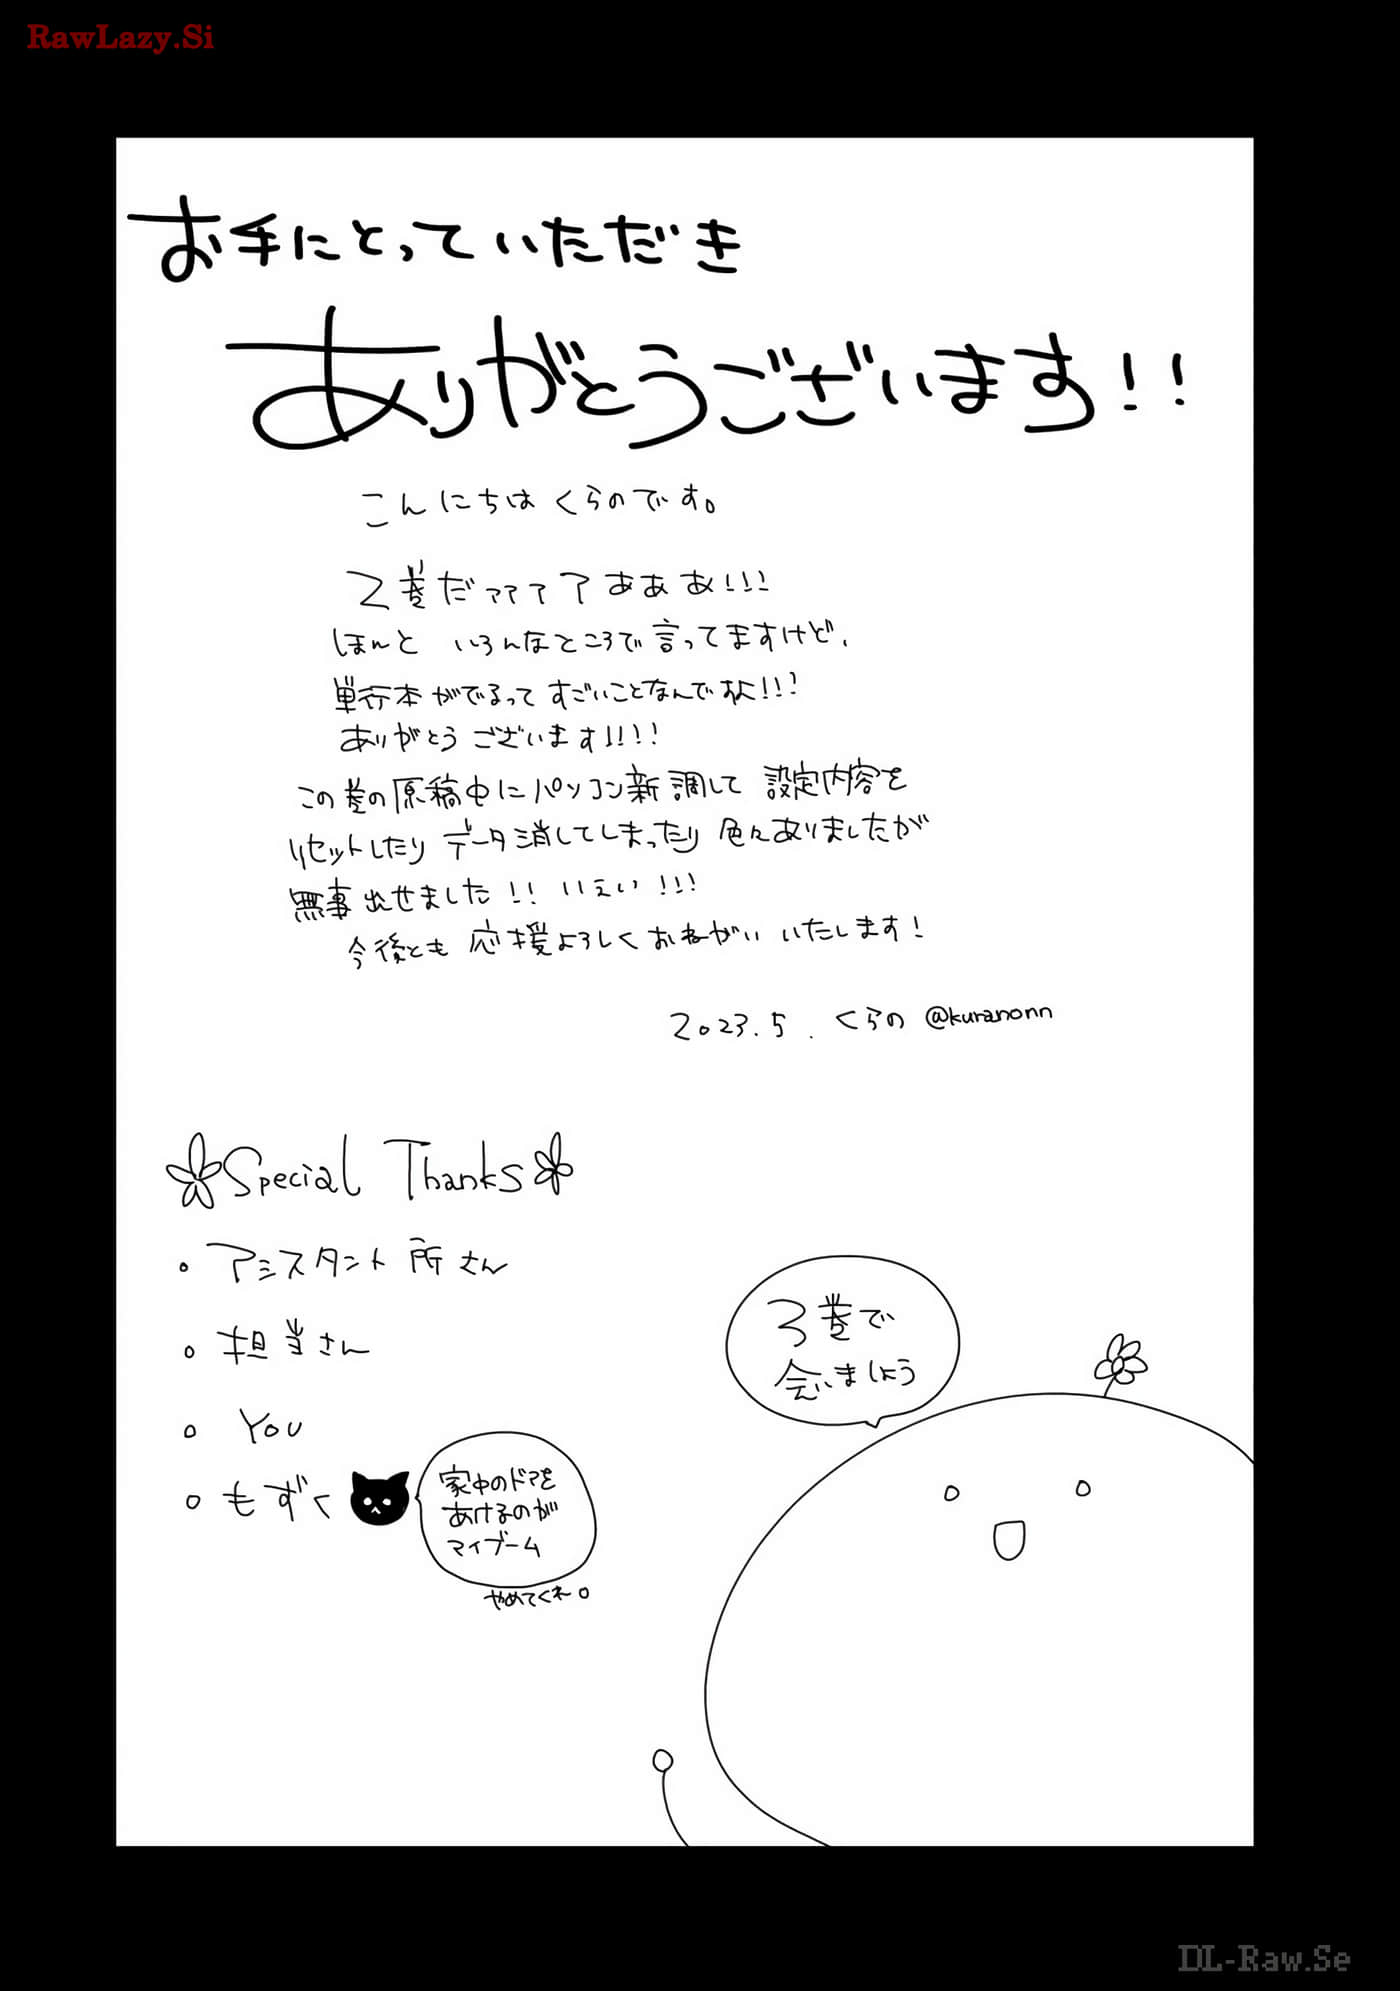 RawLazy.Si
お手にとっていただき
ありがとうございます!!
こんにちは くらのです。
2巻だァァァアあああ!!!
ほんと いろんなところで言ってますけど、
単行本がでるって すごいことなんですよ!!!
ありがとうございます!!!!
この巻の原稿中にパソコン新調して 設定内容を
リセットしたり データ消してしまったり 色々ありましたが
無事出せました!! いぇい!!!
今後とも 応援よろしくおねがいいたします!
2023.5. くらの @kuranonn
Special Thanks
・アシスタント 所さん
・担当さん
・You
・もずく
家中のドアを
あけるのが
マイブーム
やめてくれ。
3巻で
会いましょう
DL-Raw.Se